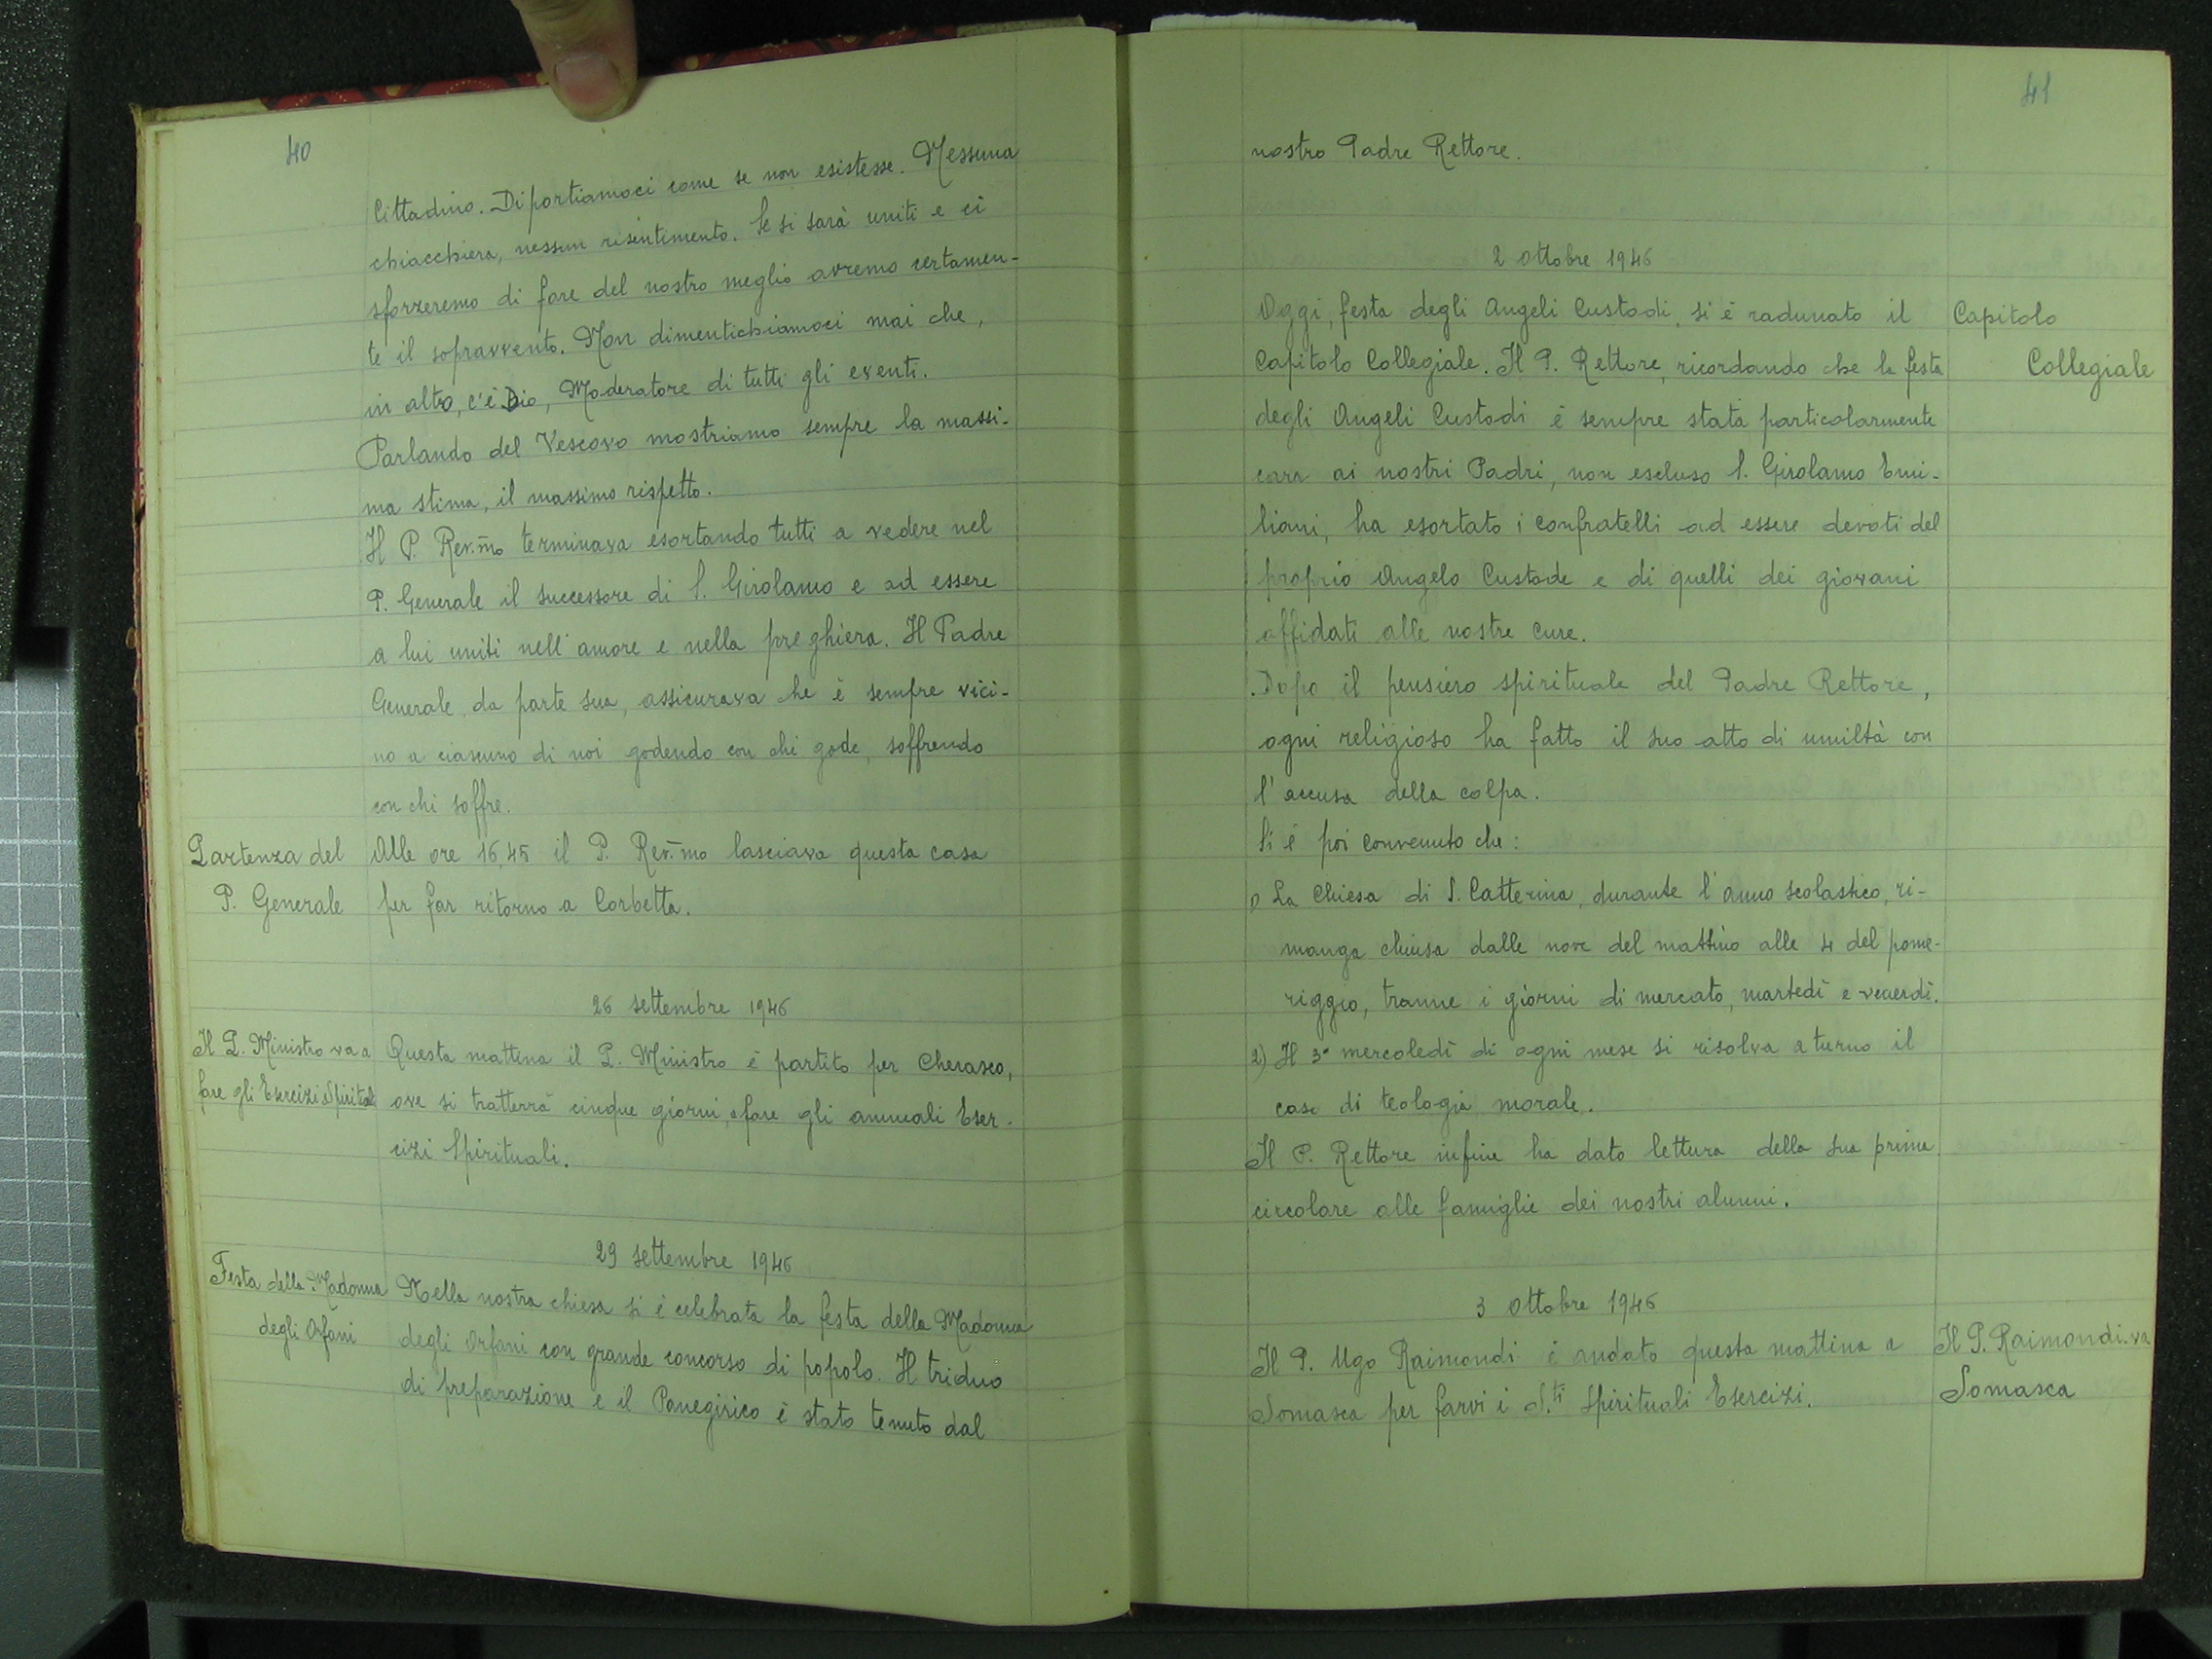 40
Cittadino. Diportiamoci come se non esistesse. Nessuna
chiacchiera, nessun risentimento. Se si sarà uniti e ci
sforzeremo di fare del nostro meglio avremo certamen-
te il sopravvento. Non dimentichiamoci mai che,
in alto, c'è Dio, Moderatore di tutti gli eventi.
Parlando del Vescovo mostriamo sempre la massi-
ma stima, il massimo rispetto.
Il P. Rev.mo terminava esortando tutti a vedere nel
P. Generale il successore di S. Girolamo e ad essere
a lui uniti nell'amore e nella preghiera. Il Padre
Generale, da parte sua, assicurava che è sempre vici-
no a ciascuno di noi godendo con chi gode, soffrendo
con chi soffre.
Partenza del
P. Generale
Alle ore 16,45 il P. Rev.mo lasciava questa casa
per far ritorno a Corbetta.
26 settembre 1946
Il P. Ministro va a
fare gli Esercizi Spirituali
Questa mattina il P. Ministro è partito per Cherasco,
ove si tratterrà cinque giorni, a fare gli annuali Eser-
cizi Spirituali.
29 settembre 1946
Festa della Madonna
degli Orfani
Nella nostra chiesa si è celebrata la festa della Madonna
degli Orfani con grande concorso di popolo. Il triduo
di preparazione e il Panegirico è stato tenuto dal
41
nostro Padre Rettore.
2 ottobre 1946
Capitolo
Collegiale
Oggi, festa degli Angeli Custodi, si è radunato il
Capitolo Collegiale. Il P. Rettore, ricordando che la festa
degli Angeli Custodi è sempre stata particolarmente
cara ai nostri Padri, non escluso S. Girolamo Emi-
liani, ha esortato i confratelli ad essere devoti del
proprio Angelo Custode e di quelli dei giovani
affidati alle nostre cure.
Dopo il pensiero spirituale del Padre Rettore,
ogni religioso ha fatto il suo atto di umiltà con
l'accusa della colpa.
Si è poi convenuto che:
1) La Chiesa di S. Catterina, durante l'anno scolastico, ri-
manga chiusa dalle nove del mattino alle 4 del pome-
riggio, tranne i giorni di mercato, martedì e venerdì.
2) Il 3° mercoledì di ogni mese si risolva a turno il
caso di teologia morale.
Il P. Rettore infine ha dato lettura della sua prima
circolare alle famiglie dei nostri alunni.
3 ottobre 1946
Il P. Raimondi va
Somasca
Il P. Ugo Raimondi è andato questa mattina a
Somasca per farvi i S.ti Spirituali Esercizi.